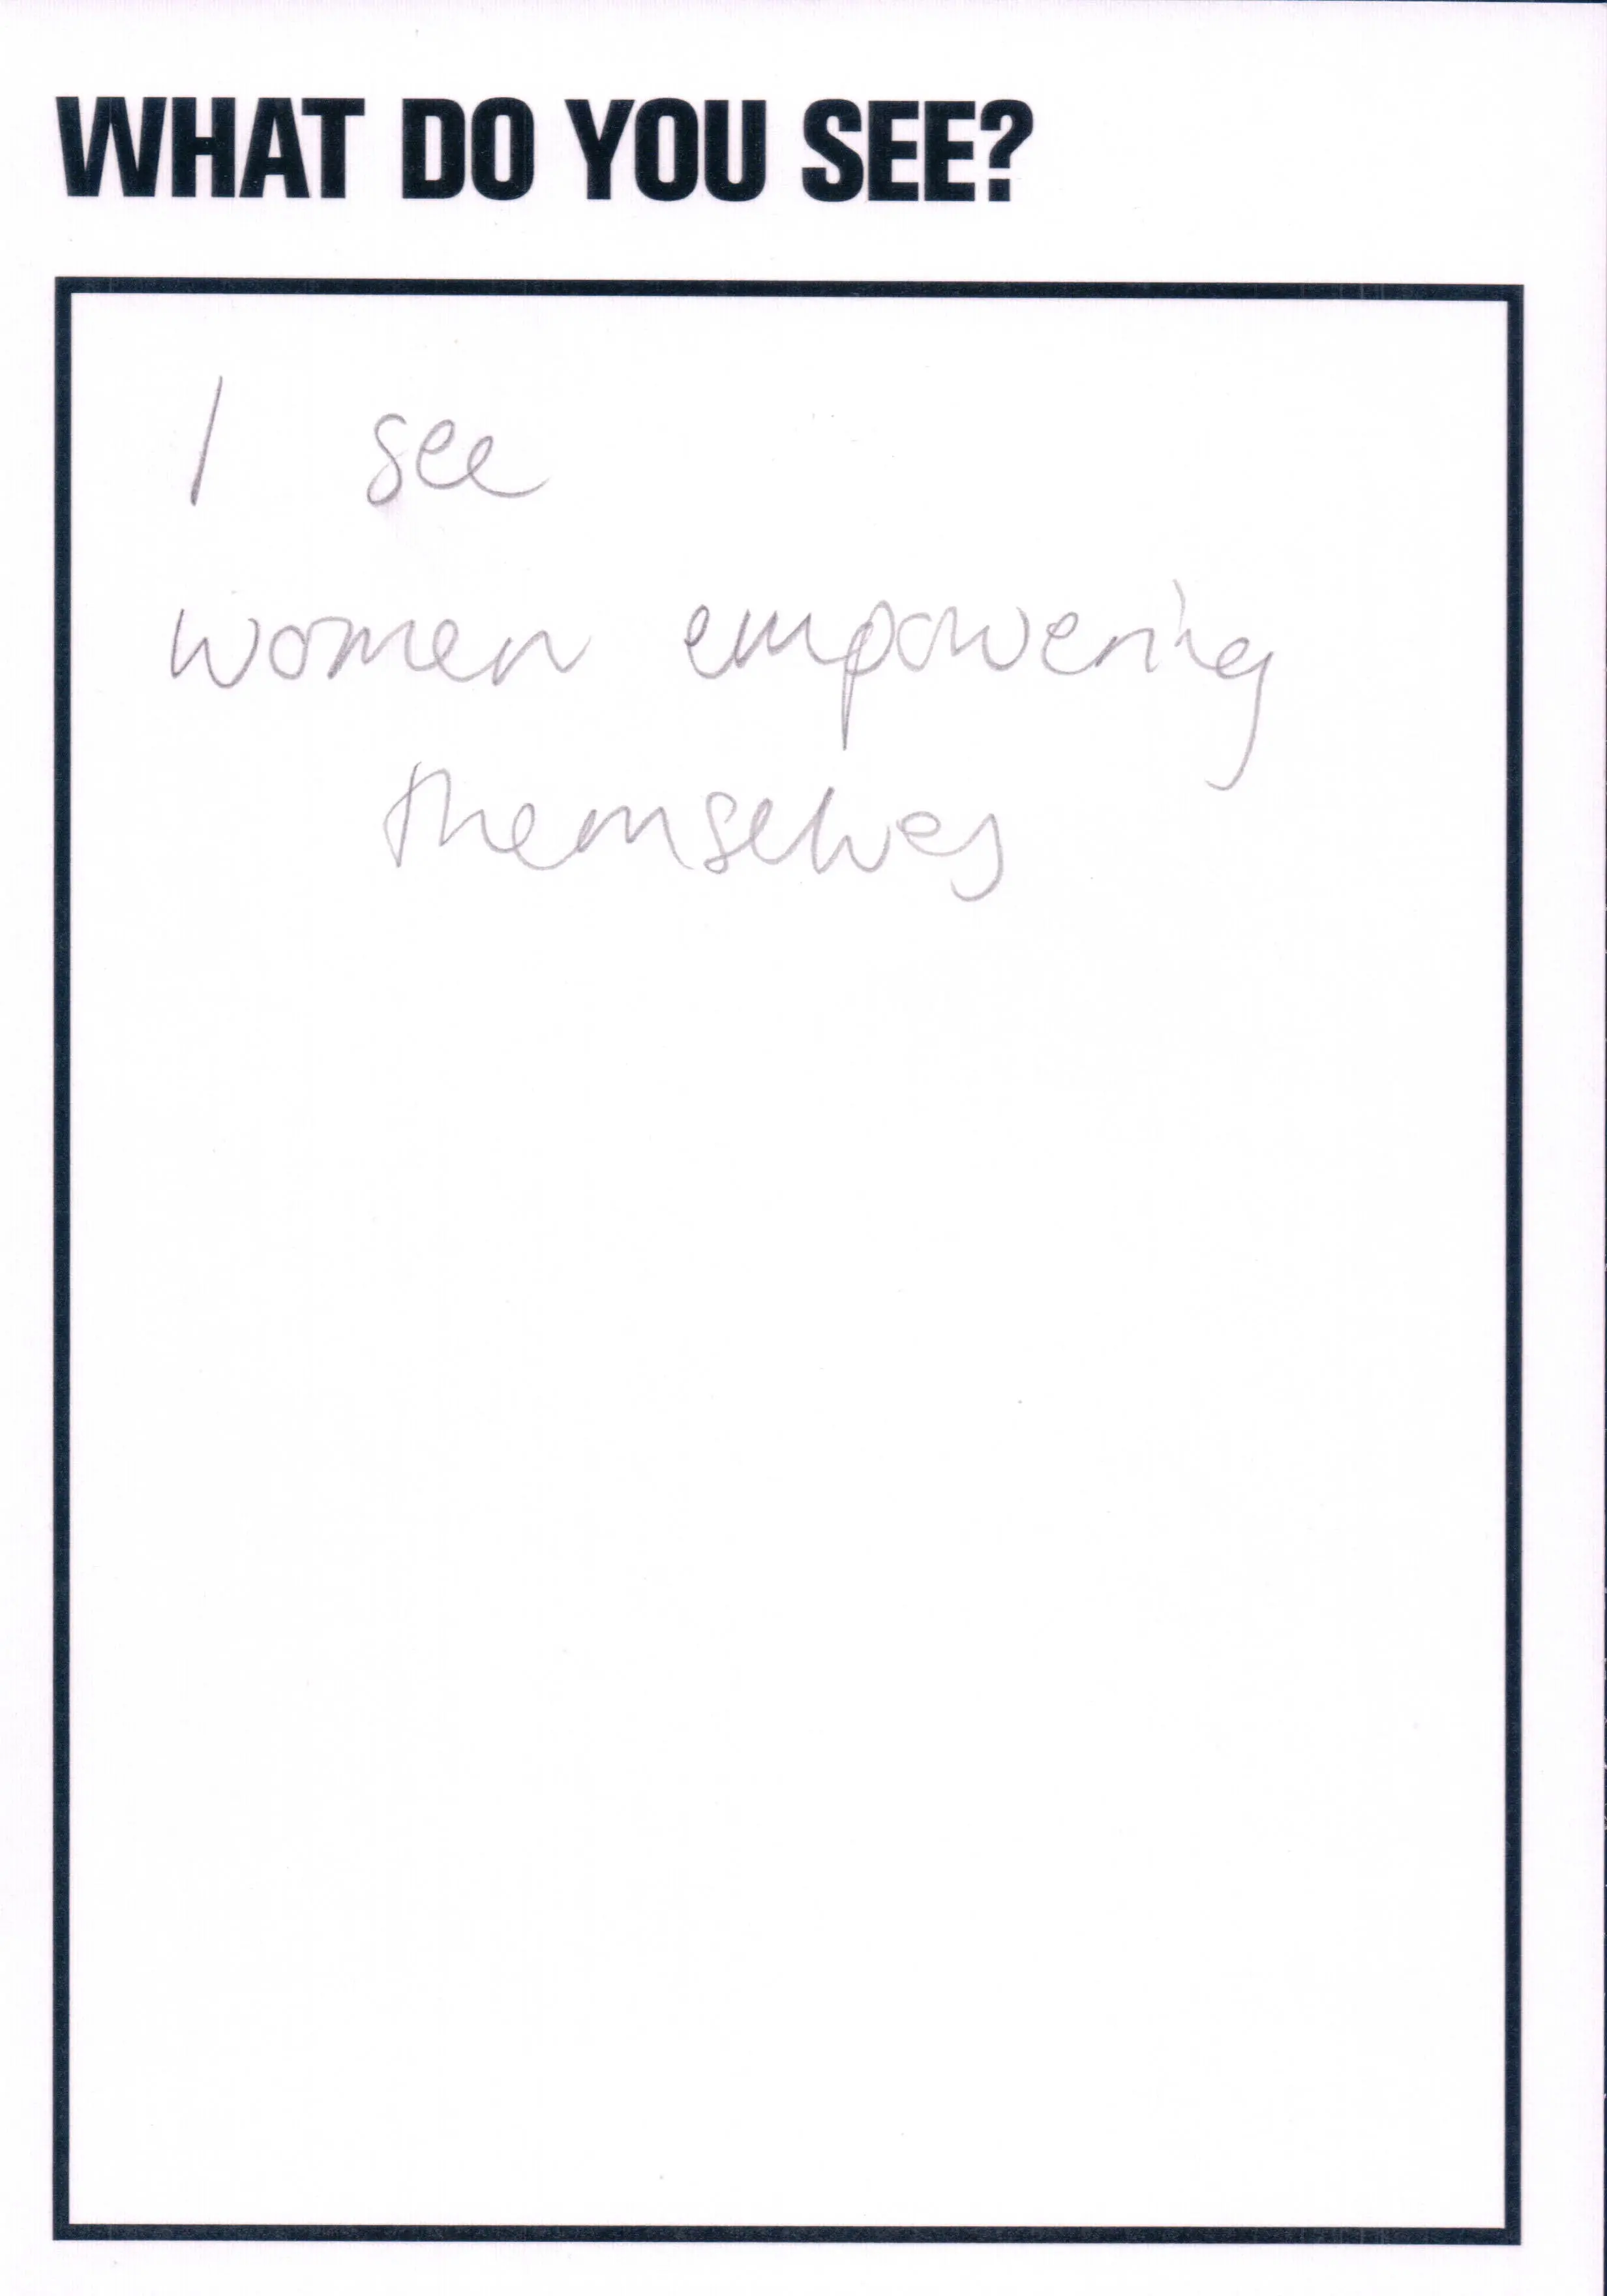 WHAT DO YOU SEE?
I see
women empowering
themselves